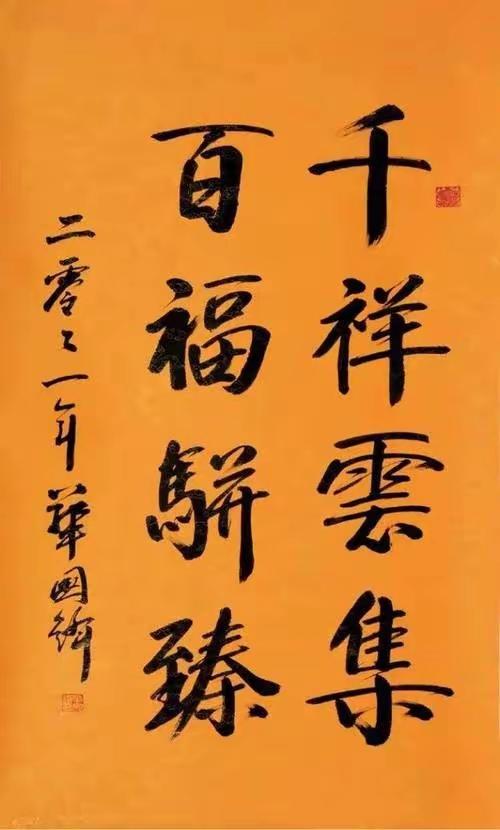 千祥雲集
百福駢臻
二零二一年 華國鋒